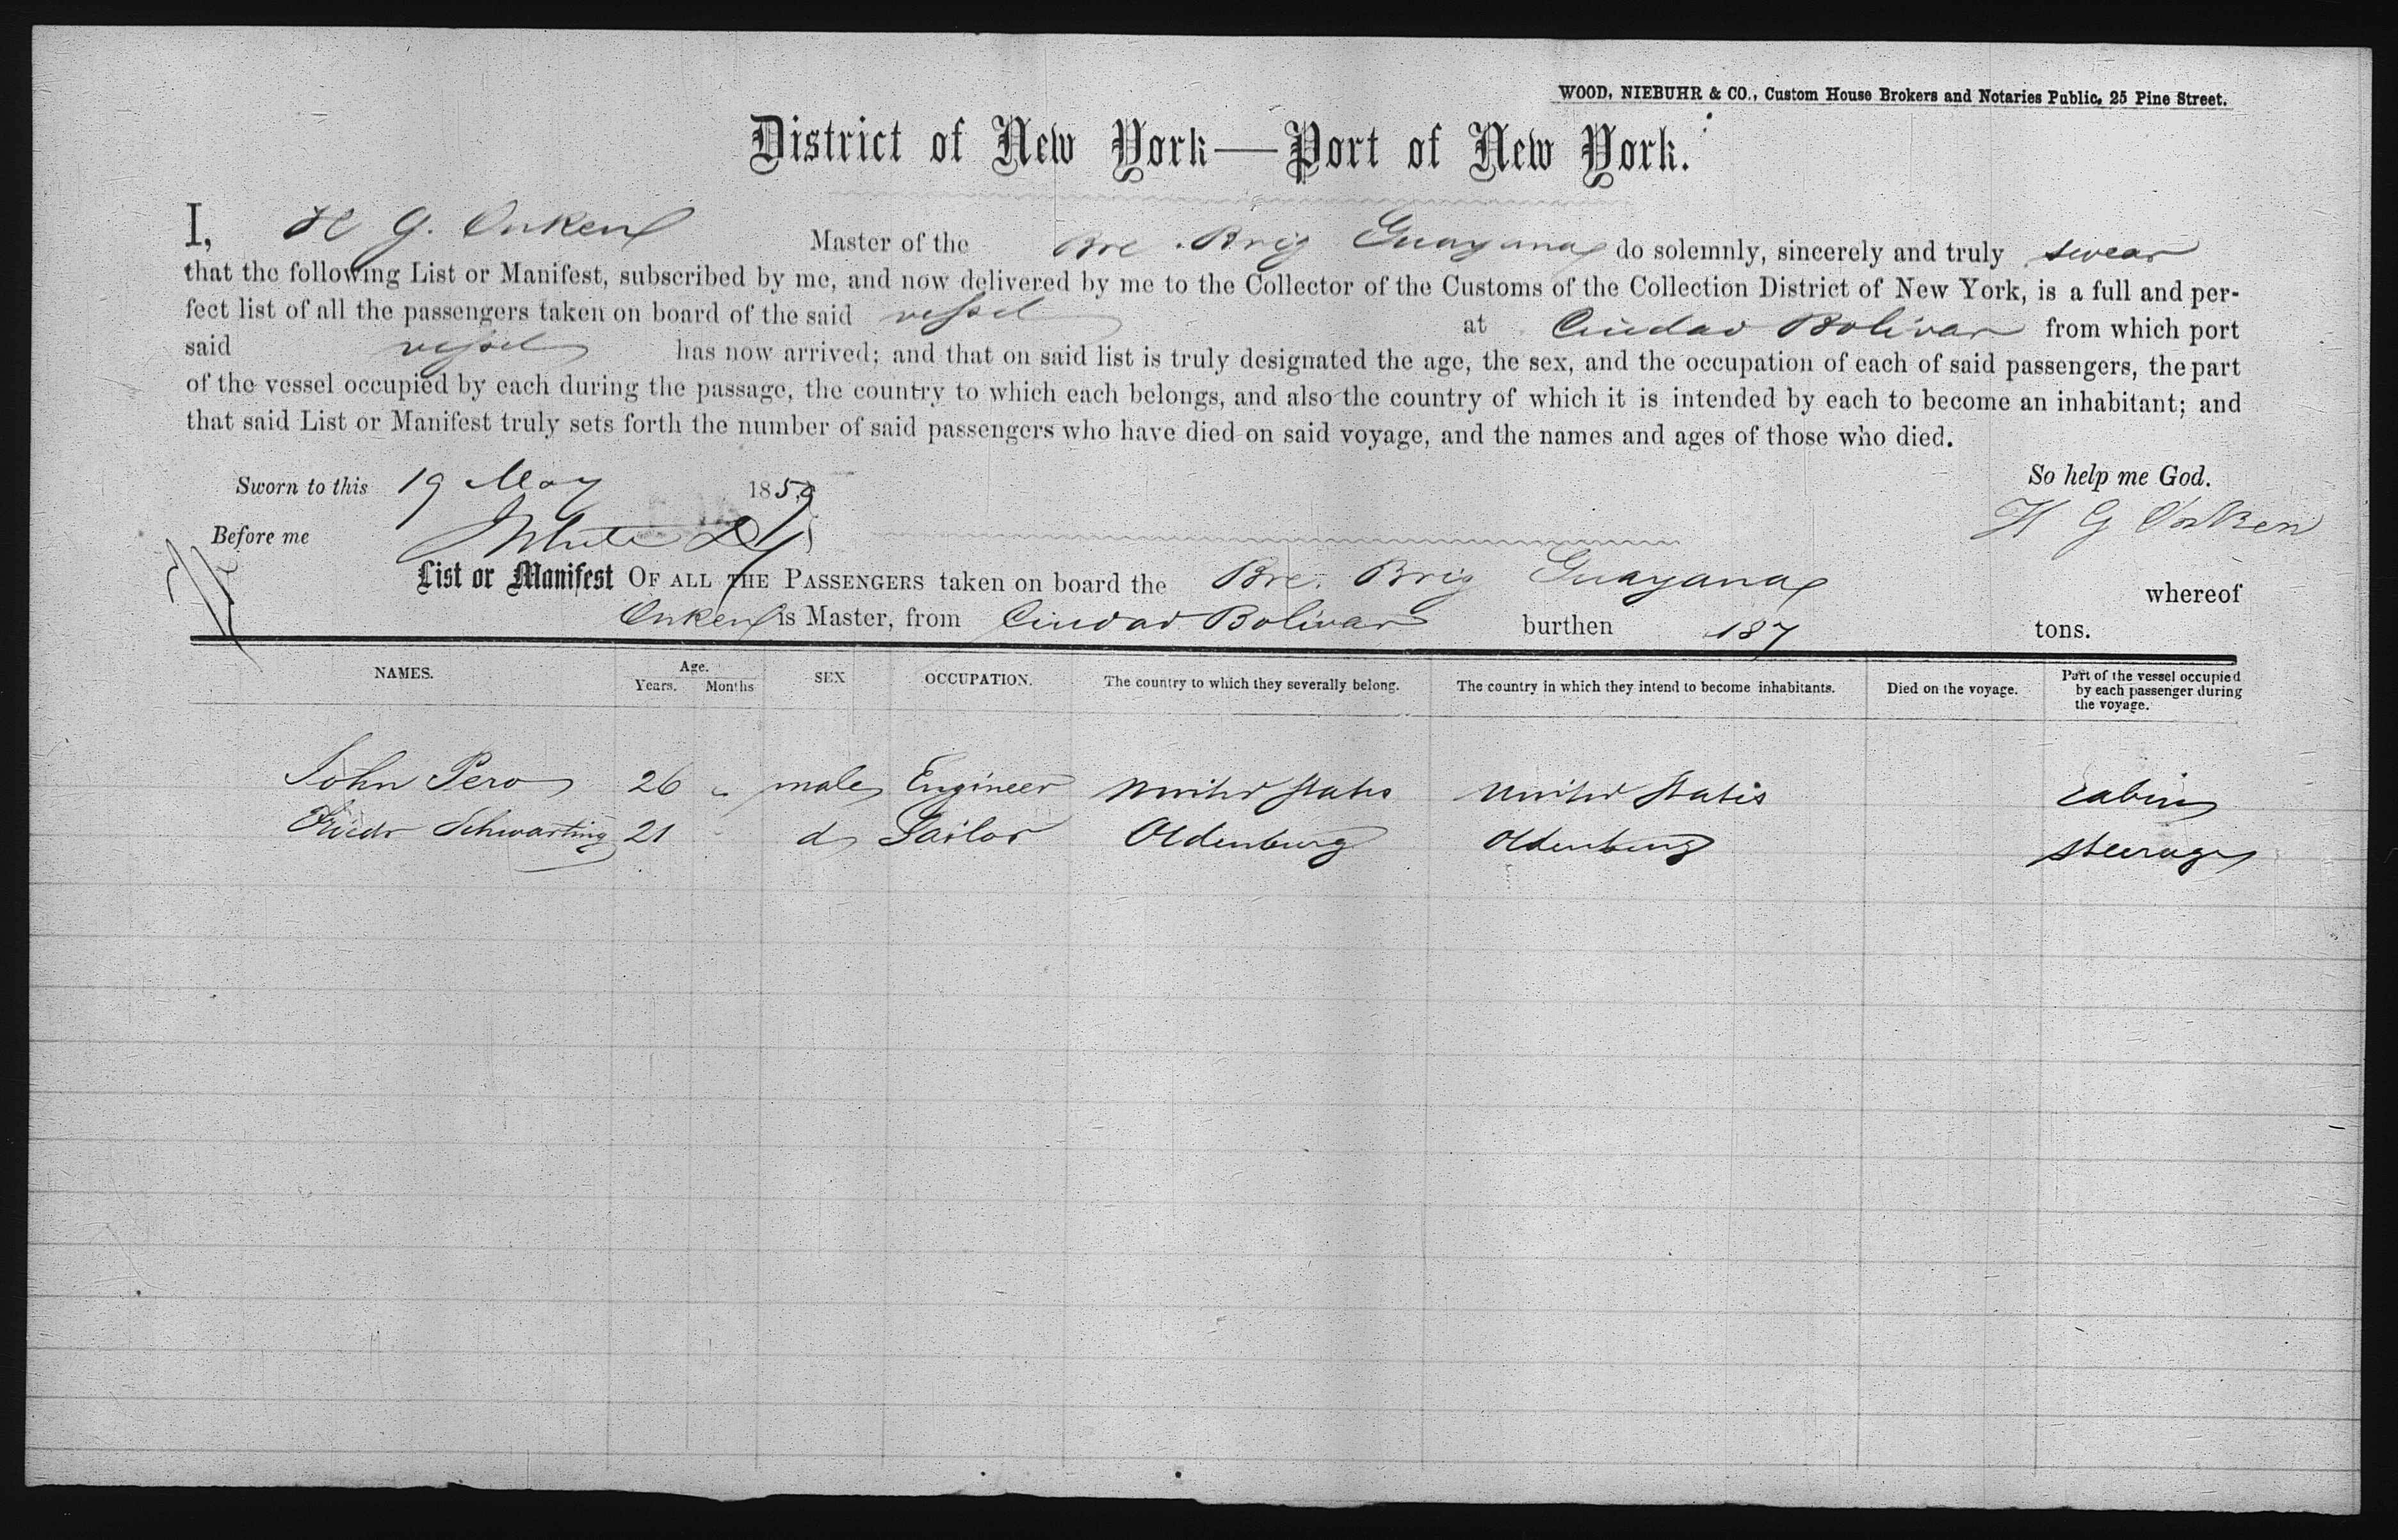 WOOD, NIEBUHR & CO., Custom House Brokers and Notaries Public, 25 Pine Street.
District of New York—Port of New York.
I, H G. Onken Master of the Bre. Brig Guayana do solemnly, sincerely and truly swear
that the following List or Manifest, subscribed by me, and now delivered by me to the Collector of the Customs of the Collection District of New York, is a full and per-
fect list of all the passengers taken on board of the said vessel at Ciudad Bolivar from which port
said vessel has now arrived; and that on said list is truly designated the age, the sex, and the occupation of each of said passengers, the part
of the vessel occupied by each during the passage, the country to which each belongs, and also the country of which it is intended by each to become an inhabitant; and
that said List or Manifest truly sets forth the number of said passengers who have died on said voyage, and the names and ages of those who died.
Sworn to this 19 May 1859 So help me God.
Before me White H G Onken
List or Manifest OF ALL THE PASSENGERS taken on board the Bre. Brig Guayana whereof
Onken is Master, from Ciudad Bolivar burthen 187 tons.
NAMES. Age. Years. Months SEX OCCUPATION. The country to which they severally belong. The country in which they intend to become inhabitants. Died on the voyage. Part of the vessel occupied by each passenger during the voyage.
John Pero 26 " male Engineer United States United States cabin
Friedr Schwarting 21 " do Sailor Oldenburg Oldenburg steerage